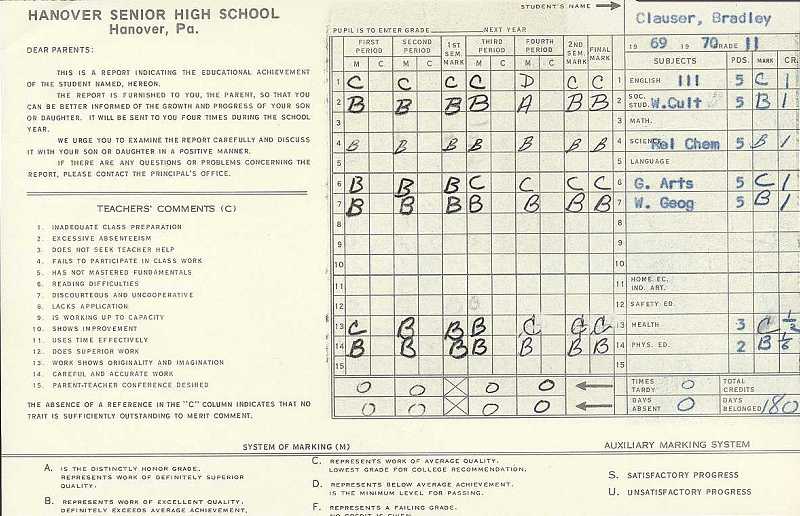 HANOVER SENIOR HIGH SCHOOL
Hanover, Pa.
DEAR PARENTS:
THIS IS A REPORT INDICATING THE EDUCATIONAL ACHIEVEMENT
OF THE STUDENT NAMED, HEREON.
THE REPORT IS FURNISHED TO YOU, THE PARENT, SO THAT YOU
CAN BE BETTER INFORMED OF THE GROWTH AND PROGRESS OF YOUR SON
OR DAUGHTER. IT WILL BE SENT TO YOU FOUR TIMES DURING THE SCHOOL
YEAR.
WE URGE YOU TO EXAMINE THE REPORT CAREFULLY AND DISCUSS
IT WITH YOUR SON OR DAUGHTER IN A POSITIVE MANNER.
IF THERE ARE ANY QUESTIONS OR PROBLEMS CONCERNING THE
REPORT, PLEASE CONTACT THE PRINCIPAL'S OFFICE.
TEACHERS' COMMENTS (C)
1. INADEQUATE CLASS PREPARATION
2. EXCESSIVE ABSENTEEISM
3. DOES NOT SEEK TEACHER HELP
4. FAILS TO PARTICIPATE IN CLASS WORK
5. HAS NOT MASTERED FUNDAMENTALS
6. READING DIFFICULTIES
7. DISCOURTEOUS AND UNCOOPERATIVE
8. LACKS APPLICATION
9. IS WORKING UP TO CAPACITY
10. SHOWS IMPROVEMENT
11. USES TIME EFFECTIVELY
12. DOES SUPERIOR WORK
13. WORK SHOWS ORIGINALITY AND IMAGINATION
14. CAREFUL AND ACCURATE WORK
15. PARENT-TEACHER CONFERENCE DESIRED
THE ABSENCE OF A REFERENCE IN THE "C" COLUMN INDICATES THAT NO
TRAIT IS SUFFICIENTLY OUTSTANDING TO MERIT COMMENT.
STUDENT'S NAME
Clauser, Bradley
PUPIL IS TO ENTER GRADE NEXT YEAR
19 69 19 70 GRADE 11
FIRST PERIOD SECOND PERIOD 1ST SEM. MARK THIRD PERIOD FOURTH PERIOD 2ND SEM. MARK FINAL MARK
M C M C M C M C
SUBJECTS PDS. MARK CR.
1 C C C C D C C 1 ENGLISH III 5 C 1
2 B B B B A B B 2 SOC. STUD. W.Cult 5 B 1
3 3 MATH.
4 B B B B B B B 4 SCIENCE Rel Chem 5 B 1
5 5 LANGUAGE
6 B B B C C C C 6 G. Arts 5 C 1
7 B B B B B B B 7 W. Geog 5 B 1
8 8
9 9
10 10
11 11 HOME EC. IND. ART.
12 12 SAFETY ED.
13 C B B B C C C 13 HEALTH 3 C 1/2
14 B B B B B B B 14 PHYS. ED. 2 B
15 15
0 0 0 0 TIMES TARDY 0 TOTAL CREDITS
0 0 0 0 DAYS ABSENT 0 DAYS BELONGED 180
SYSTEM OF MARKING (M)
A. IS THE DISTINCTLY HONOR GRADE.
REPRESENTS WORK OF DEFINITELY SUPERIOR
QUALITY.
B. REPRESENTS WORK OF EXCELLENT QUALITY,
DEFINITELY EXCEEDS AVERAGE ACHIEVEMENT,
C. REPRESENTS WORK OF AVERAGE QUALITY.
LOWEST GRADE FOR COLLEGE RECOMMENDATION.
D. REPRESENTS BELOW AVERAGE ACHIEVEMENT.
IS THE MINIMUM LEVEL FOR PASSING.
F. REPRESENTS A FAILING GRADE.
NO CREDIT IS GIVEN
AUXILIARY MARKING SYSTEM
S. SATISFACTORY PROGRESS
U. UNSATISFACTORY PROGRESS